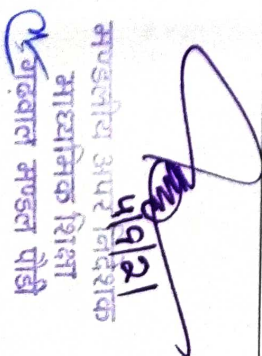 4/9/21
मण्डलीय अपर निदेशक
माध्यमिक शिक्षा
गढ़वाल मण्डल पौड़ी